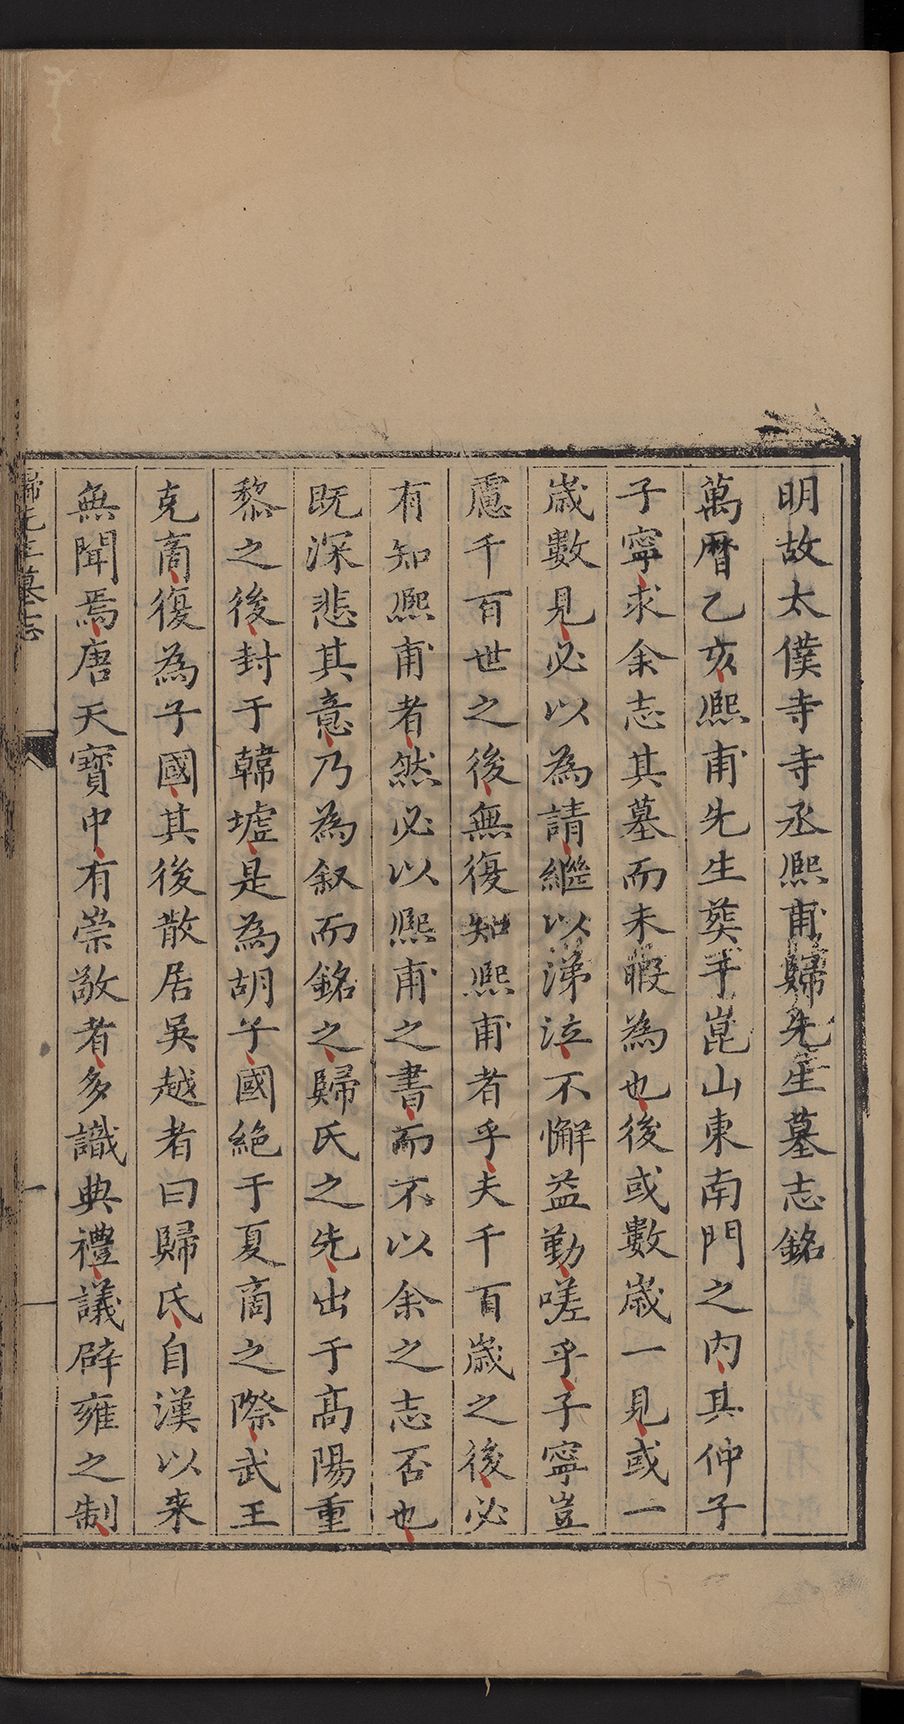 明故太僕寺寺丞熙甫歸先生墓志銘
萬曆乙亥熙甫先生葬于崑山東南門之内其仲子
子寧求余志其墓而未暇為也後或數歲一見或一
歲數見必以為請繼以涕泣不懈益勤嗟乎子寧豈
慮千百世之後無復知熙甫者乎夫千百歲之後必
有知熙甫者然必以熙甫之書而不以余之志否也
既深悲其意乃為叙而銘之歸氏之先出于高陽重
黎之後封于韓墟是為胡子國絕于夏商之際武王
克商復為子國其後散居吳越者曰歸氏自漢以来
無聞焉唐天寶中有崇敬者多識典禮議辟雍之制
歸先生墓志
一